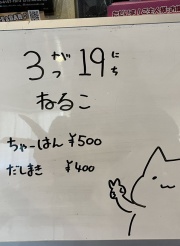 3がつ19にち
ねるこ
ちゃーはん ¥500
だしまき ¥400